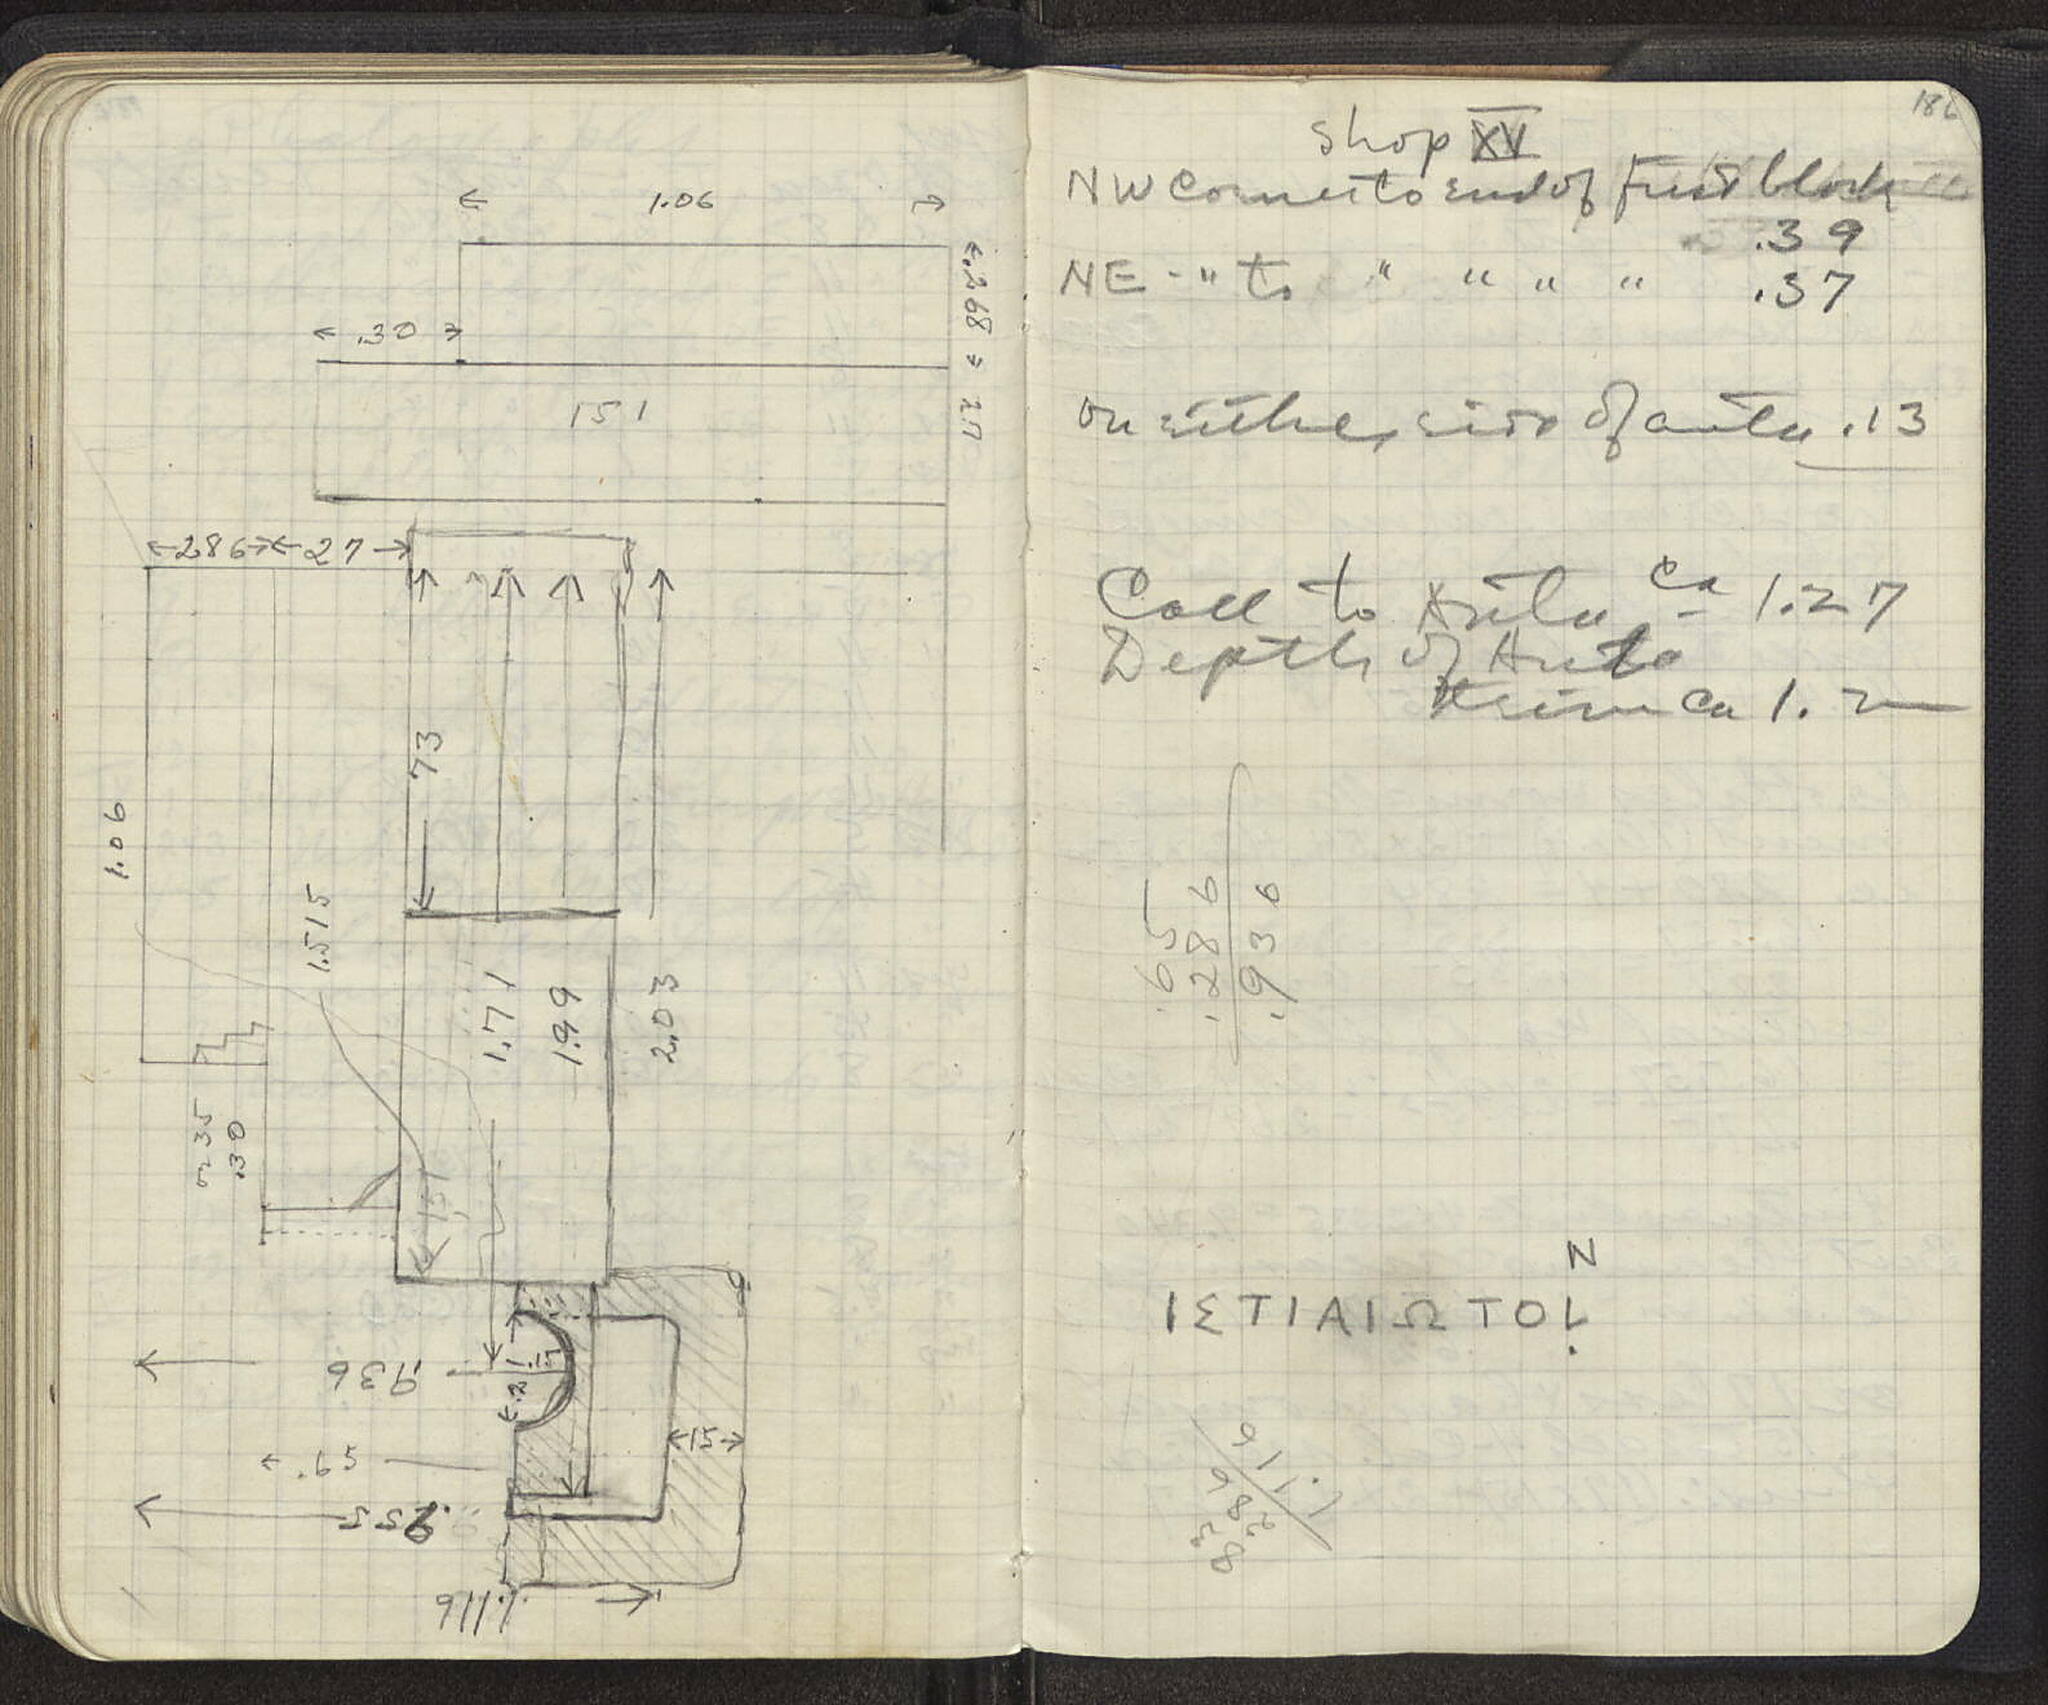 1.06
.268
.30
2.7
151
286
27
73
1.06
1.515
1.71
1.99
2.03
.235
.30
151
.936
.21
.17
15
.65
.955
1.116
186
Shop XV
NW Corner to end of first block
.39
NE -" to " " " " .37
on either side of anta .13
Coll to Anta ca 1.27
Depth of Anta
ca 1.2
.65
.286
.936
N
ΙΣΤΙΑΙΩΤΟΙ
83
286
1.116